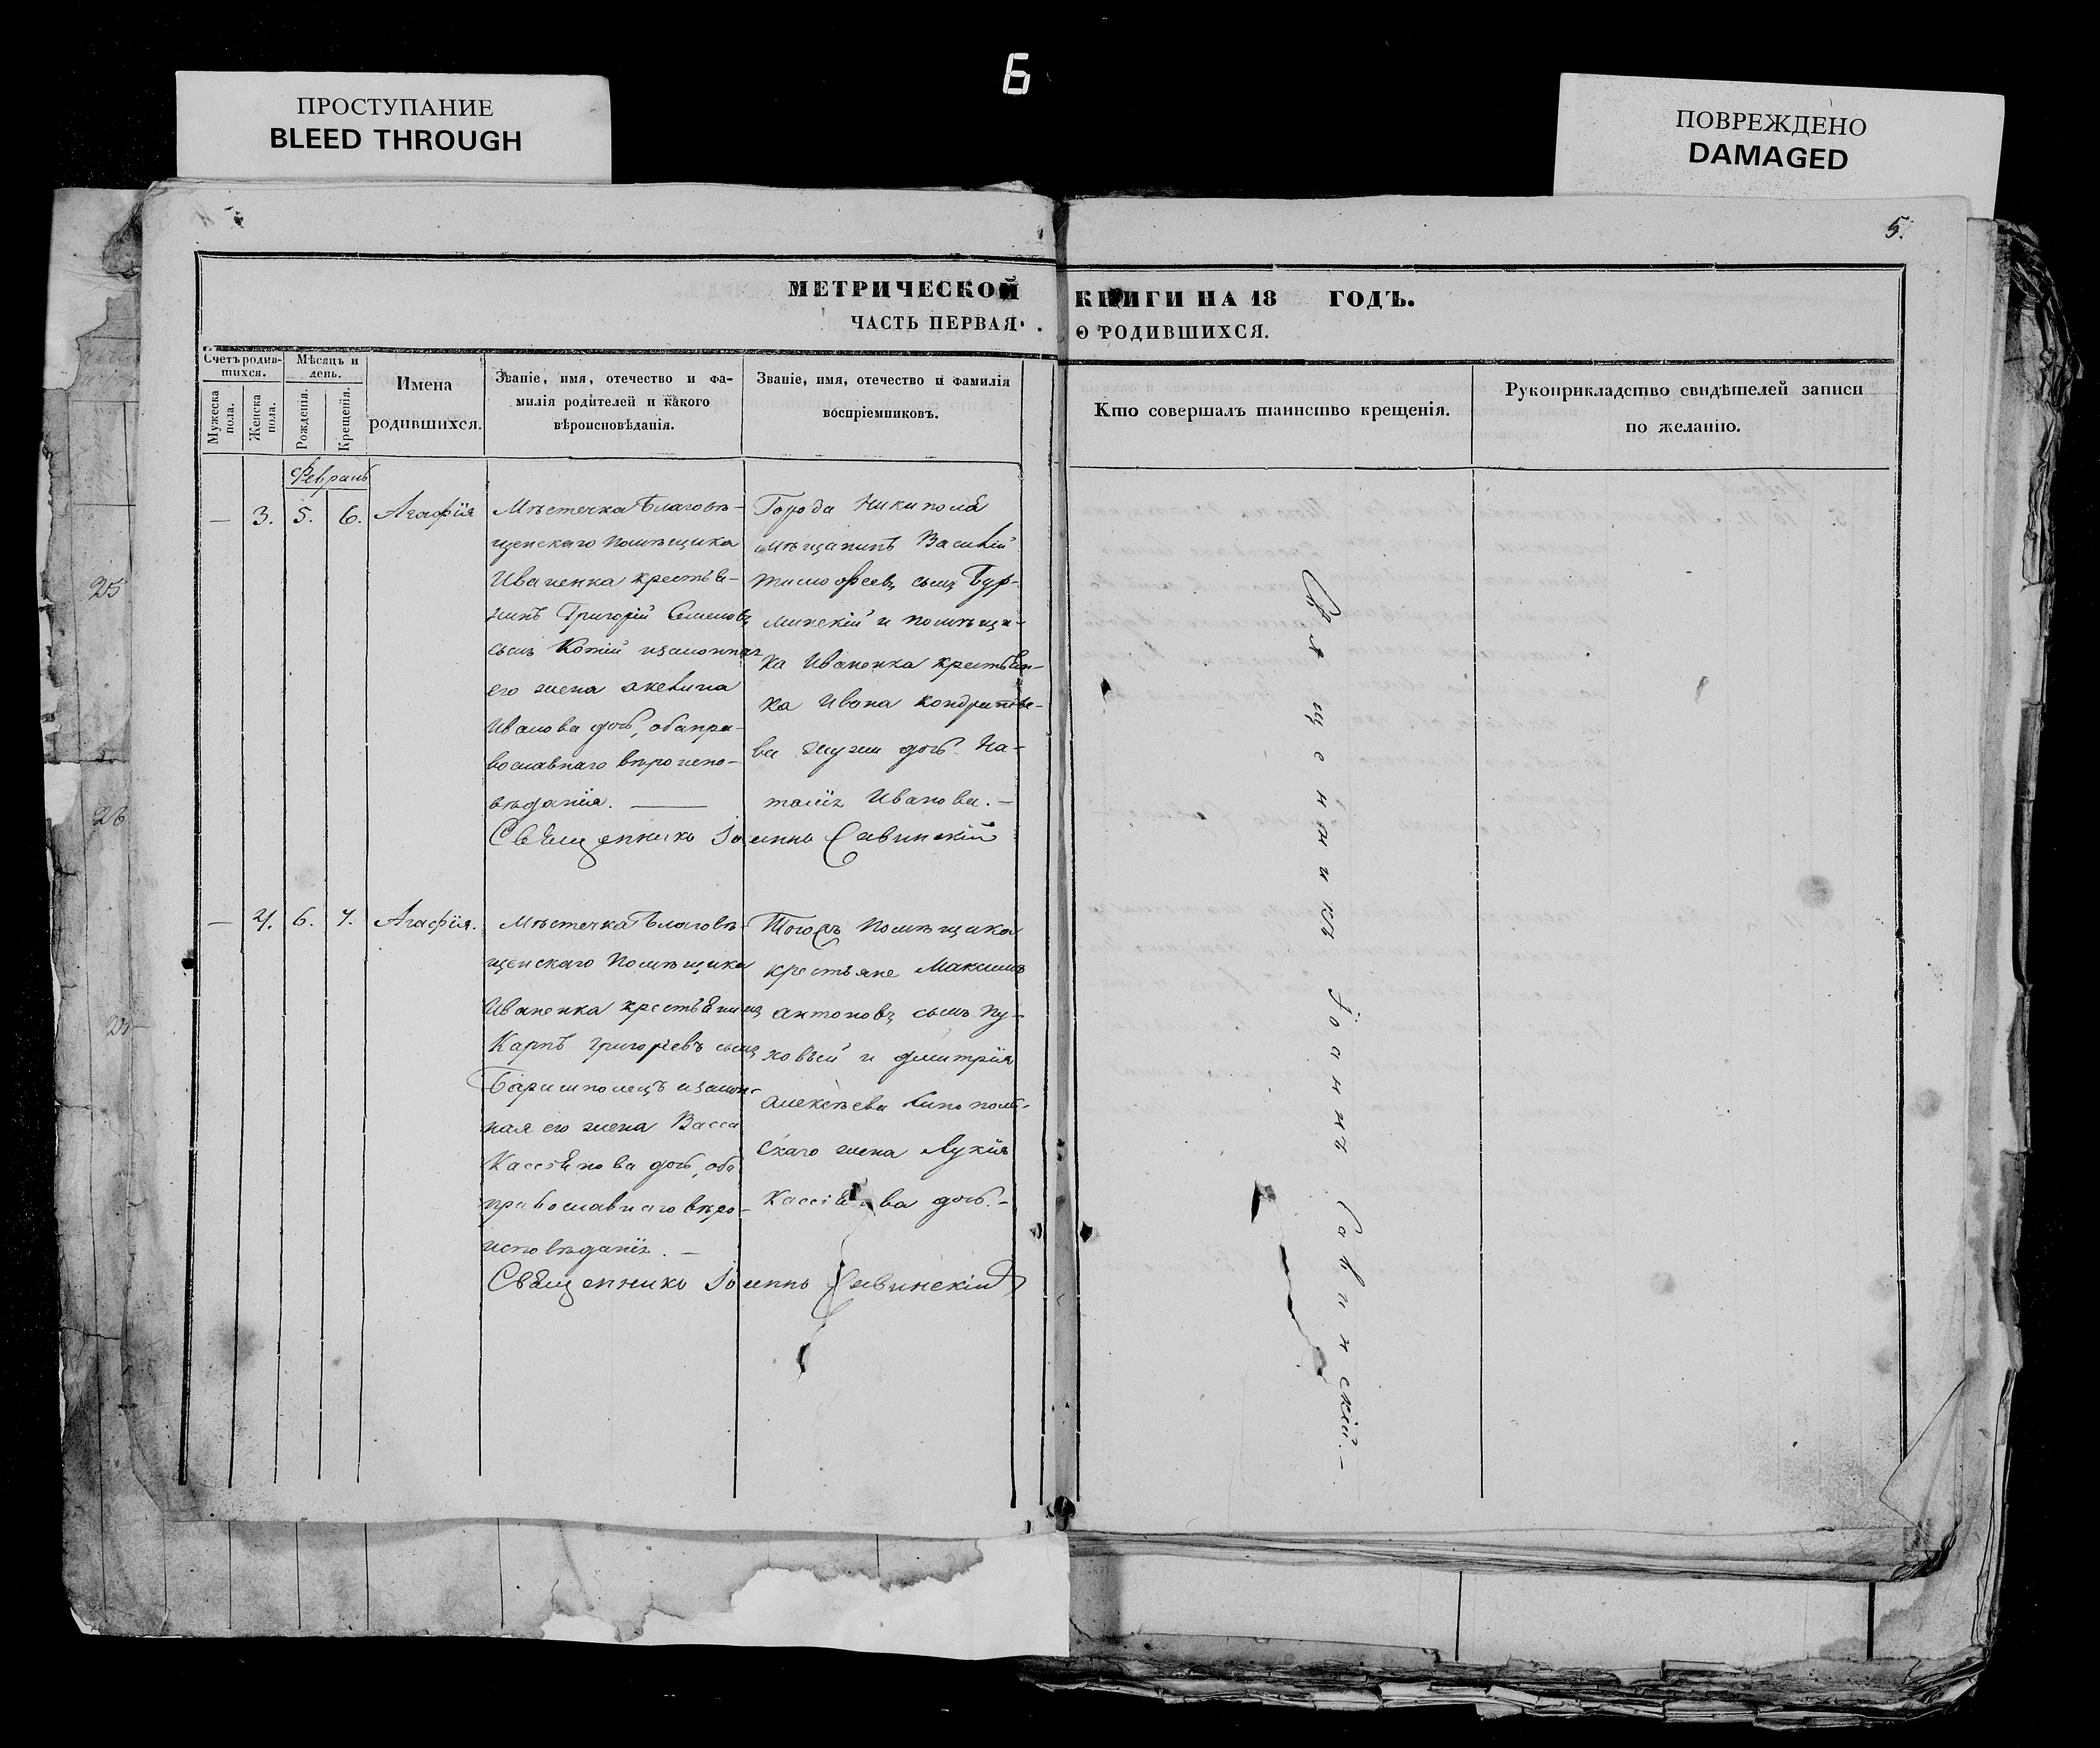 6
ПРОСТУПАНИЕ
BLEED THROUGH
ПОВРЕЖДЕНО
DAMAGED
5.
МЕТРИЧЕСКОЙ КНИГИ НА 18 ГОДЪ.
ЧАСТЬ ПЕРВАЯ. О РОДИВШИХСЯ.
Счетъ родив-
шихся.
Мужеска
пола.
Женска
пола.
Мѣсяцъ и
день.
Рожденія.
Крещенія.
Имена
родившихся.
Званіе, имя, отечество и фа-
милія родителей и какого
вѣроисповѣданія.
Званіе, имя, отечество и фамилія
воспріемниковъ.
Кто совершалъ таинство крещенія.
Рукоприкладство свидѣтелей записи
по желанію.
Февраль
— 3. 5. 6. Агафія
Мѣстечка Благовѣ-
щенскаго помѣщика
Иваненка крестья-
нинъ Григорій Семеновъ
сынъ Котій изаконная
его жена Акелина
Иванова дочь, оба пра-
вославнаго вѣроиспо-
вѣданія. —
Города Никополя
мѣщанинъ Василій
Тимофеевъ сынъ Бур-
линскій и помѣщи-
ка Иваненка крестьян-
ка Ивана Кондратье-
ва дочь На-
талія Иванова. —
Священникъ Іоаннъ Савинскій
— 4. 6. 7. Агафія.
Мѣстечка Благовѣ-
щенскаго помѣщика
Иваненка крестьянинъ
Карпъ Григоріевъ сынъ
Баришполецъ изакон-
ная его жена Васса
Кассіянова дочь, оба
православнаго вѣро-
исповѣданія. —
Тогожъ помѣщика
крестьяне Максимъ
Антоновъ сынъ Пу-
ховый и Дмитрія
Алексѣева
скаго жена Лукія
Кассіянова дочь. —
Священникъ Іоаннъ Савинскій
Священникъ Іоаннъ Савинскій. —
25
26